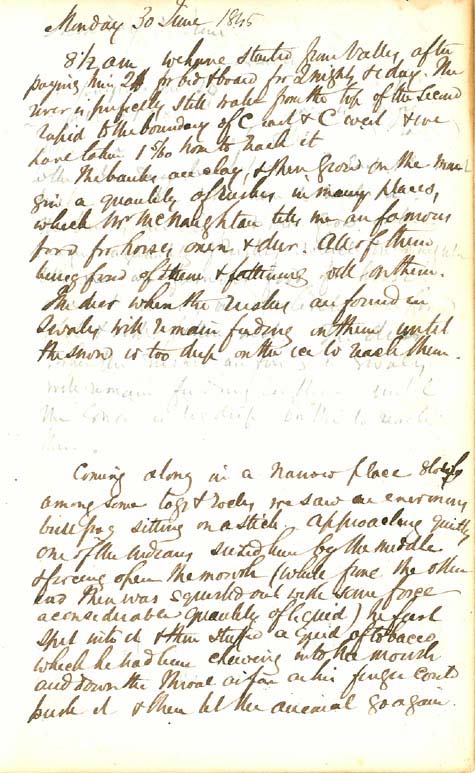 Monday 30 June 1845
8 1/2 am we have started from Valley after
paying him 2$ for bed & board for 2 nights & day. The
river is perfectly still water from the top of the second
rapid to the boundary of C east & C west & we
have taken 1 hour to reach it
The banks are clay, & there grows on the
a quantity of rushes in many places,
which Mr McNaughtan tells me are famous
food for horses oxen & deer. All of them
being fond of them & fattening well on them.
The deer when the rushes are found in
Swales will remain feeding in them until
the snow is too deep on the ice to reach them.
will remain feeding until
the snow is too deep to reach
them.
Coming along in a narrow place
among some logs & rocks we saw an enormous
bull frog sitting on a stick. approaching quietly
one of the Indians seized him by the middle
& forcing open the mouth (while from the other
end there was squirted out with some force
a considerable quantity of liquid) he first
spit into it & then stuffed a quid of tobacco
which he had been chewing into the mouth
and down the throat as far as his finger could
push it & then let the animal go again.